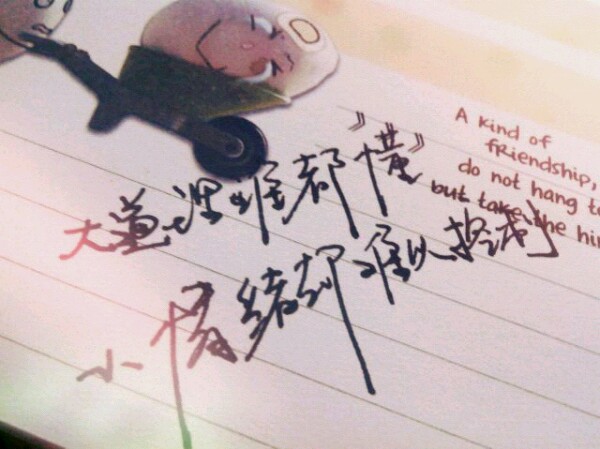 A kind of
friendship,
do not hang
but take the
大道理谁都《懂》
小情绪却难以控制